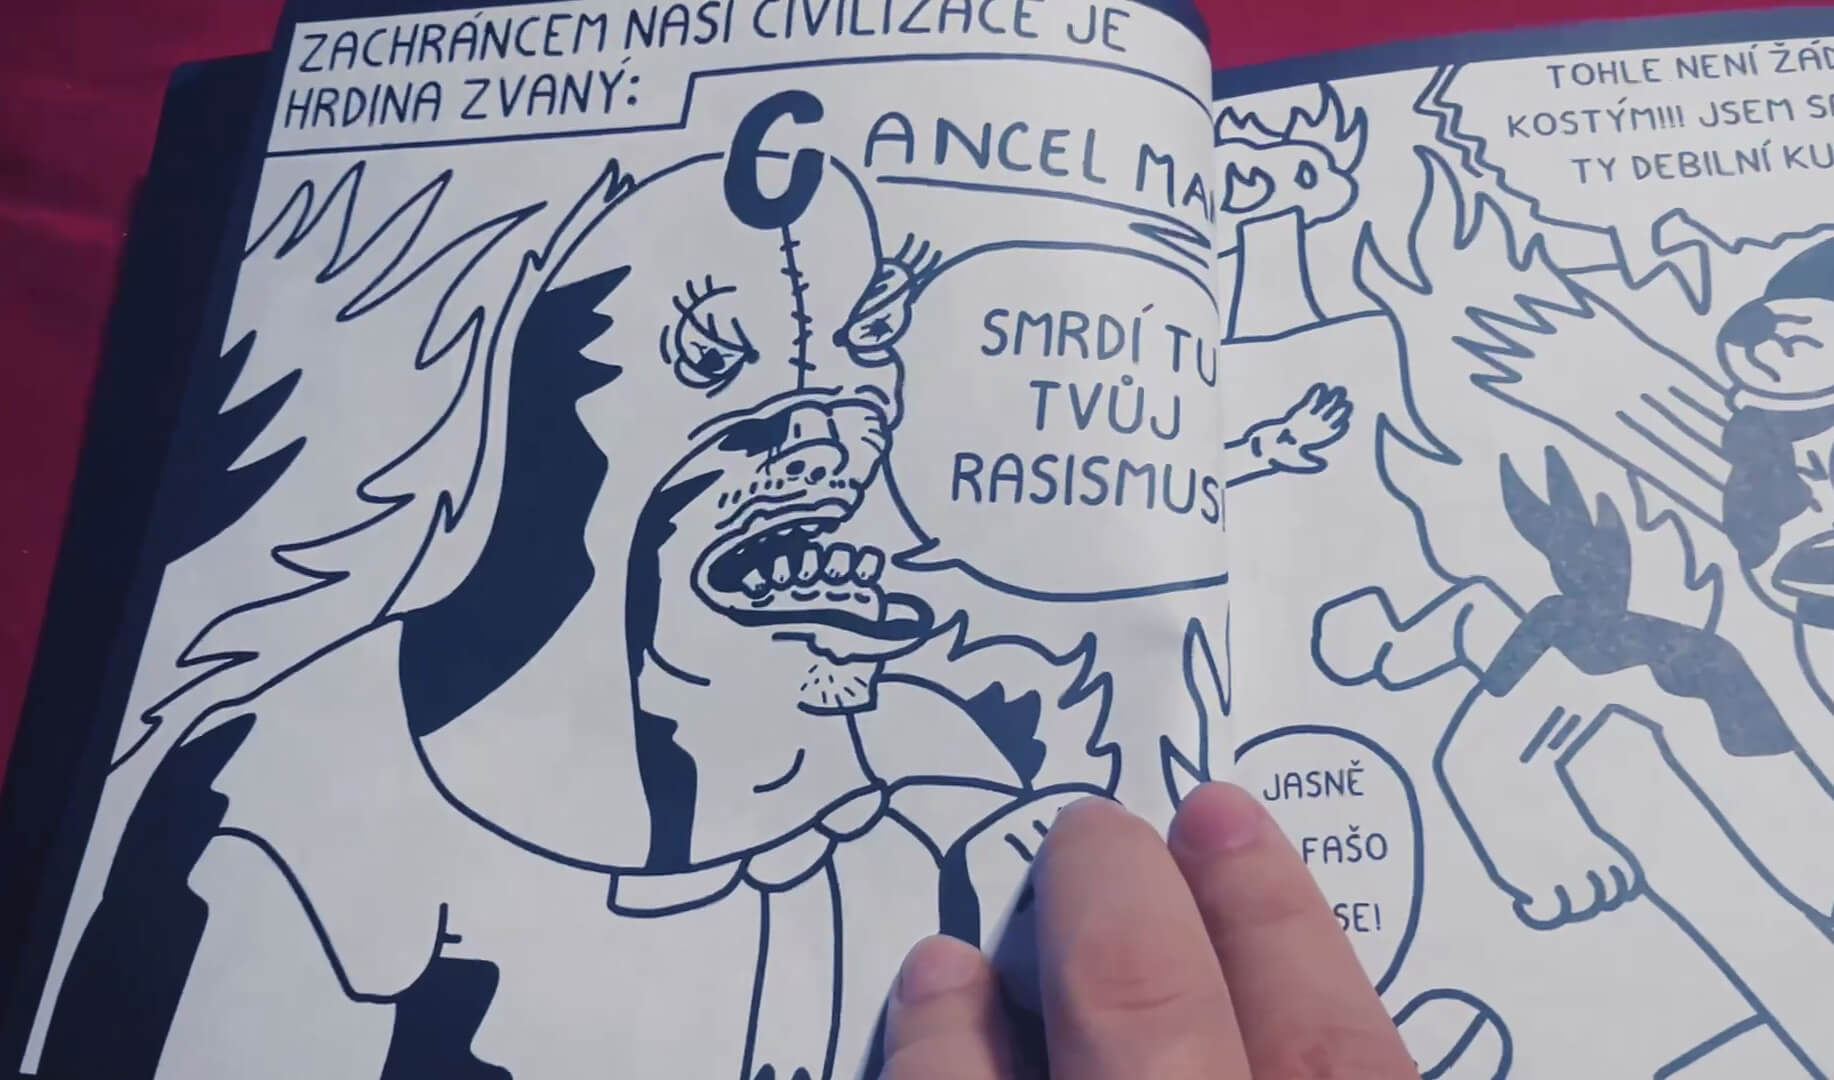 ZACHRÁNCEM NAŠÍ CIVILIZACE JE
HRDINA ZVANÝ:
CANCEL
SMRDÍ TU
TVŮJ
RASISMUS
TOHLE NENÍ
KOSTÝM!!! JSEM
TY DEBILNÍ
JASNĚ
FAŠO
SE!